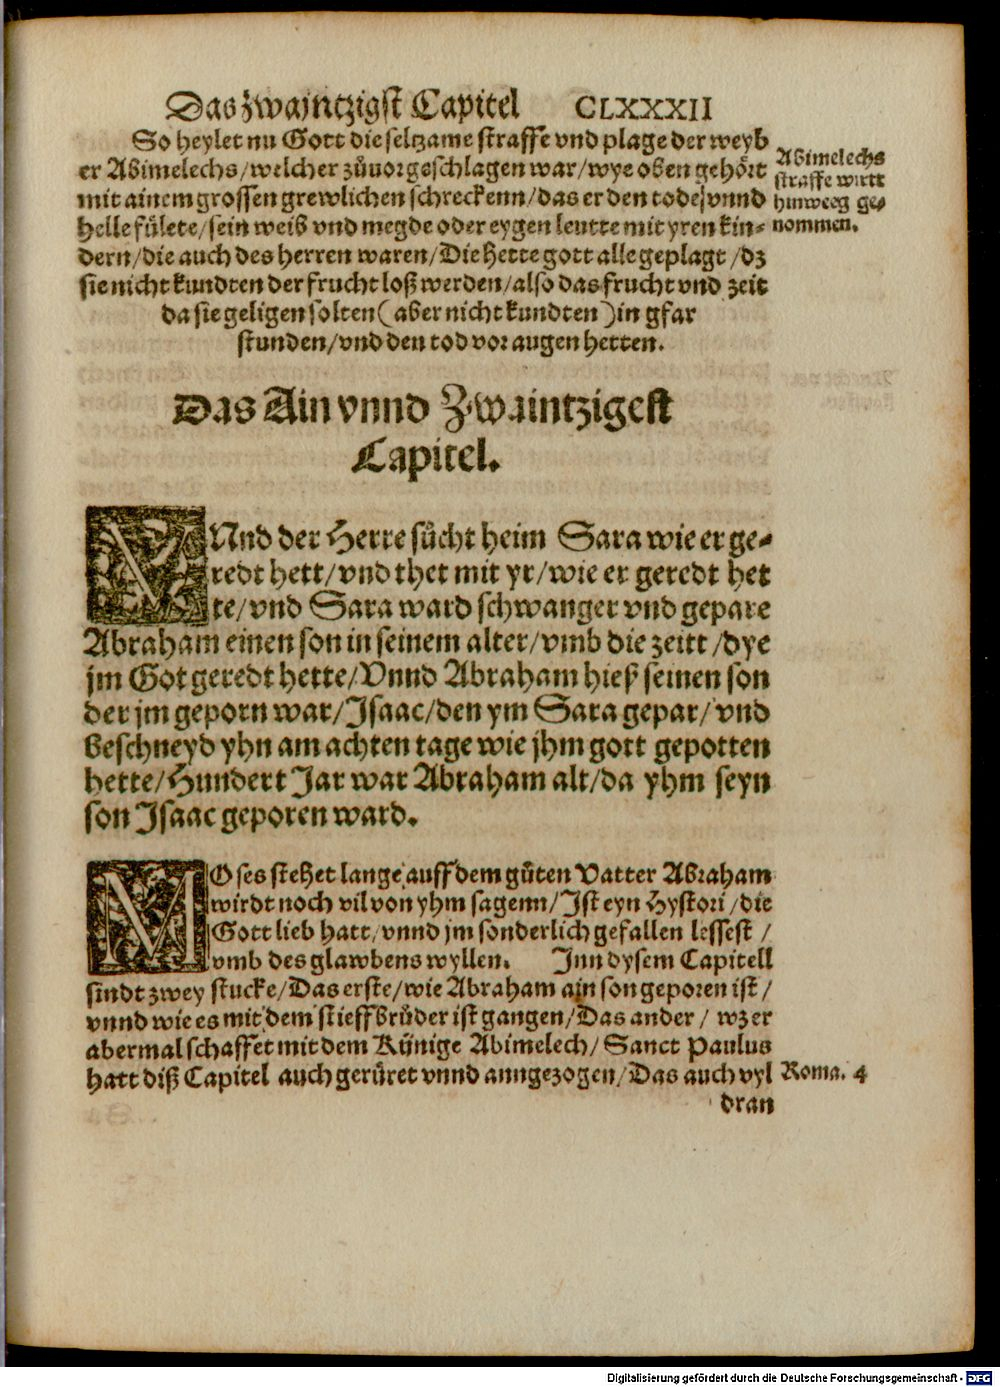 Das zwajntzigst Capitel CLXXXII
So heylet nu Gott die seltzame straffe vnd plage der weyb
er Abimelechs/welcher zůuorgeschlagen war/wye oben gehört
mit ainem grossen grewlichen schreckenn/das er den tode/vnnd
helle fülete/sein weib vnd megde oder eygen leutte mit yren kin-
dern/die auch des herren waren/Die hette gott alle geplagt/dz
sie nicht kundten der frucht loß werden/also das frucht vnd zeit
da sie geligen solten(aber nicht kundten)in gfar
stunden/vnd den tod vor augen hetten.
Abimelechs
straffe wirtt
hinweeg ge-
nommen.
Das Ain vnnd Zwaintzigest
Capitel.
VNnd der Herre sůcht heim Sara wie er ge-
redt hett/vnd thet mit yr/wie er geredt het
te/vnd Sara ward schwanger vnd gepare
Abraham einen son in seinem alter/vmb die zeitt/dye
jm Got geredt hette/Vnnd Abraham hieß seinen son
der jm geporn war/Isaac/den ym Sara gepar/vnd
beschneyd yhn am achten tage wie jhm gott gepotten
hette/Hundert Jar war Abraham alt/da yhm seyn
son Isaac geporen ward.
MOses stehet lange auff dem gůten Vatter Abraham
wirdt noch vil von yhm sagenn/Ist eyn Hystori/die
Gott lieb hatt/vnnd jm sonderlich gefallen lessest/
vmb des glawbens wyllen. Inn dysem Capitell
sindt zwey stucke/Das erste/wie Abraham ain son geporen ist/
vnnd wie es mit dem stieffbrůder ist gangen/Das ander/wz er
abermal schaffet mit dem Künige Abimelech/Sanct Paulus
hatt diß Capitel auch gerüret vnnd anngezogen/Das auch vyl
Roma. 4
dran
Digitalisierung gefördert durch die Deutsche Forschungsgemeinschaft - DFG